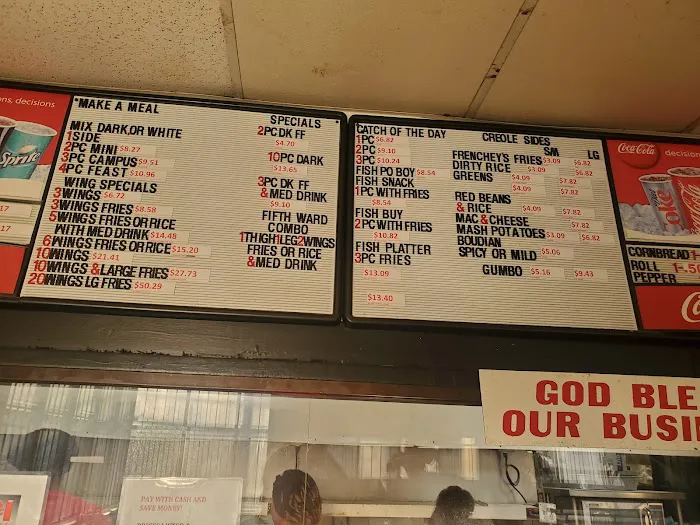 ons, decisions
Sprite
17
17
"MAKE A MEAL
MIX DARK,OR WHITE
1SIDE
2PC MINI $8.27
3PC CAMPUS $9.51
4PC FEAST $10.96
WING SPECIALS
3WINGS $6.72
3WINGS FRIES $8.58
5WINGS FRIES OR RICE
WITH MED DRINK $14.48
6WINGS FRIES OR RICE $15.20
10WINGS $21.41
10WINGS &LARGE FRIES $27.73
20WINGS LG FRIES $50.29
SPECIALS
2PC DK FF
$4.70
10PC DARK
$13.65
3PC DK FF
& MED DRINK
$9.10
FIFTH WARD
COMBO
1THIGH1LEG2WINGS
FRIES OR RICE
&MED DRINK
CATCH OF THE DAY
1PC $6.82
2PC $9.10
3PC $10.24
FISH PO BOY $8.54
FISH SNACK
1PC WITH FRIES
$8.54
FISH BUY
2PC WITH FRIES
$10.82
FISH PLATTER
3PC FRIES
$13.09
$13.40
CREOLE SIDES
SM LG
FRENCHEY'S FRIES $3.09 $6.82
DIRTY RICE $4.09 $7.82
GREENS $4.09 $7.82
RED BEANS
& RICE $4.09 $7.82
MAC&CHEESE $7.82
MASH POTATOES $3.09 $6.82
BOUDIAN
SPICY OR MILD $5.06
GUMBO $5.16 $9.43
Coca-Cola
decision
CORNBREAD 1-
ROLL 1-.50
PEPPER
GOD BLE
OUR BUSI
PAY WITH CASH AND
SAVE MONEY!